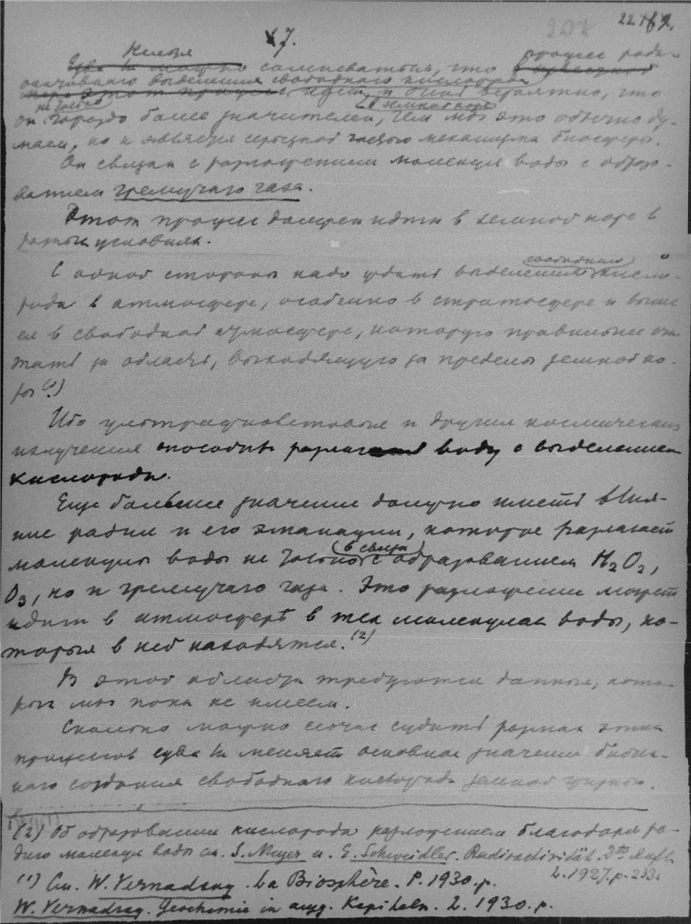 7.
207 22
Нельзя
Едва ли можно сомневаться, что процесс ради-
оактивнаго выделения свободнаго кислорода
через этот процесс идет, и очень вероятно, что
не только в земной коре
он гораздо более значителен, чем мы это обычно ду-
маем, но и является серьезной частью механизма биосферы.
Он связан с разложением молекул воды с образо-
ванием гремучаго газа.
Этот процесс должен идти в земной коре в
разных условиях.
свободнаго
С одной стороны надо ждать выделения кисло-
рода в атмосфере, особенно в стратосфере и выше
ея в свободной атмосфере, которую правильнее счи-
тать за область, выходящую за пределы земной ко-
ры (1)
Ибо ультрафиолетовыя и другия космическия
излучения способны разлагать воду с выделением
кислорода.
Еще большее значение должно иметь влия-
ние радия и его эманации, которые разлагают
в связи
молекулы воды не только с образованием H2O2,
O3, но и гремучаго газа. Это разложение может
идти в атмосфере в тех молекулах воды, ко-
торыя в ней находятся. (2)
В этой области требуются данные, кото-
рых мы пока не имеем.
Сколько можно сейчас судить размах этих
процессов едва ли меняет основное значение биоген-
наго создания свободнаго кислорода земной
(2) Об образовании кислорода разложением благодаря ра-
дию молекул воды см. S. Meyer u. E. Schweidler. Radioactivität. 2te Aufl.
L. 1927. p. 233.
(1) См. W. Vernadsky. La Biosphère. P. 1930. p.
W. Vernadsky. Geochemie in ausg. Kapiteln. L. 1930. p.